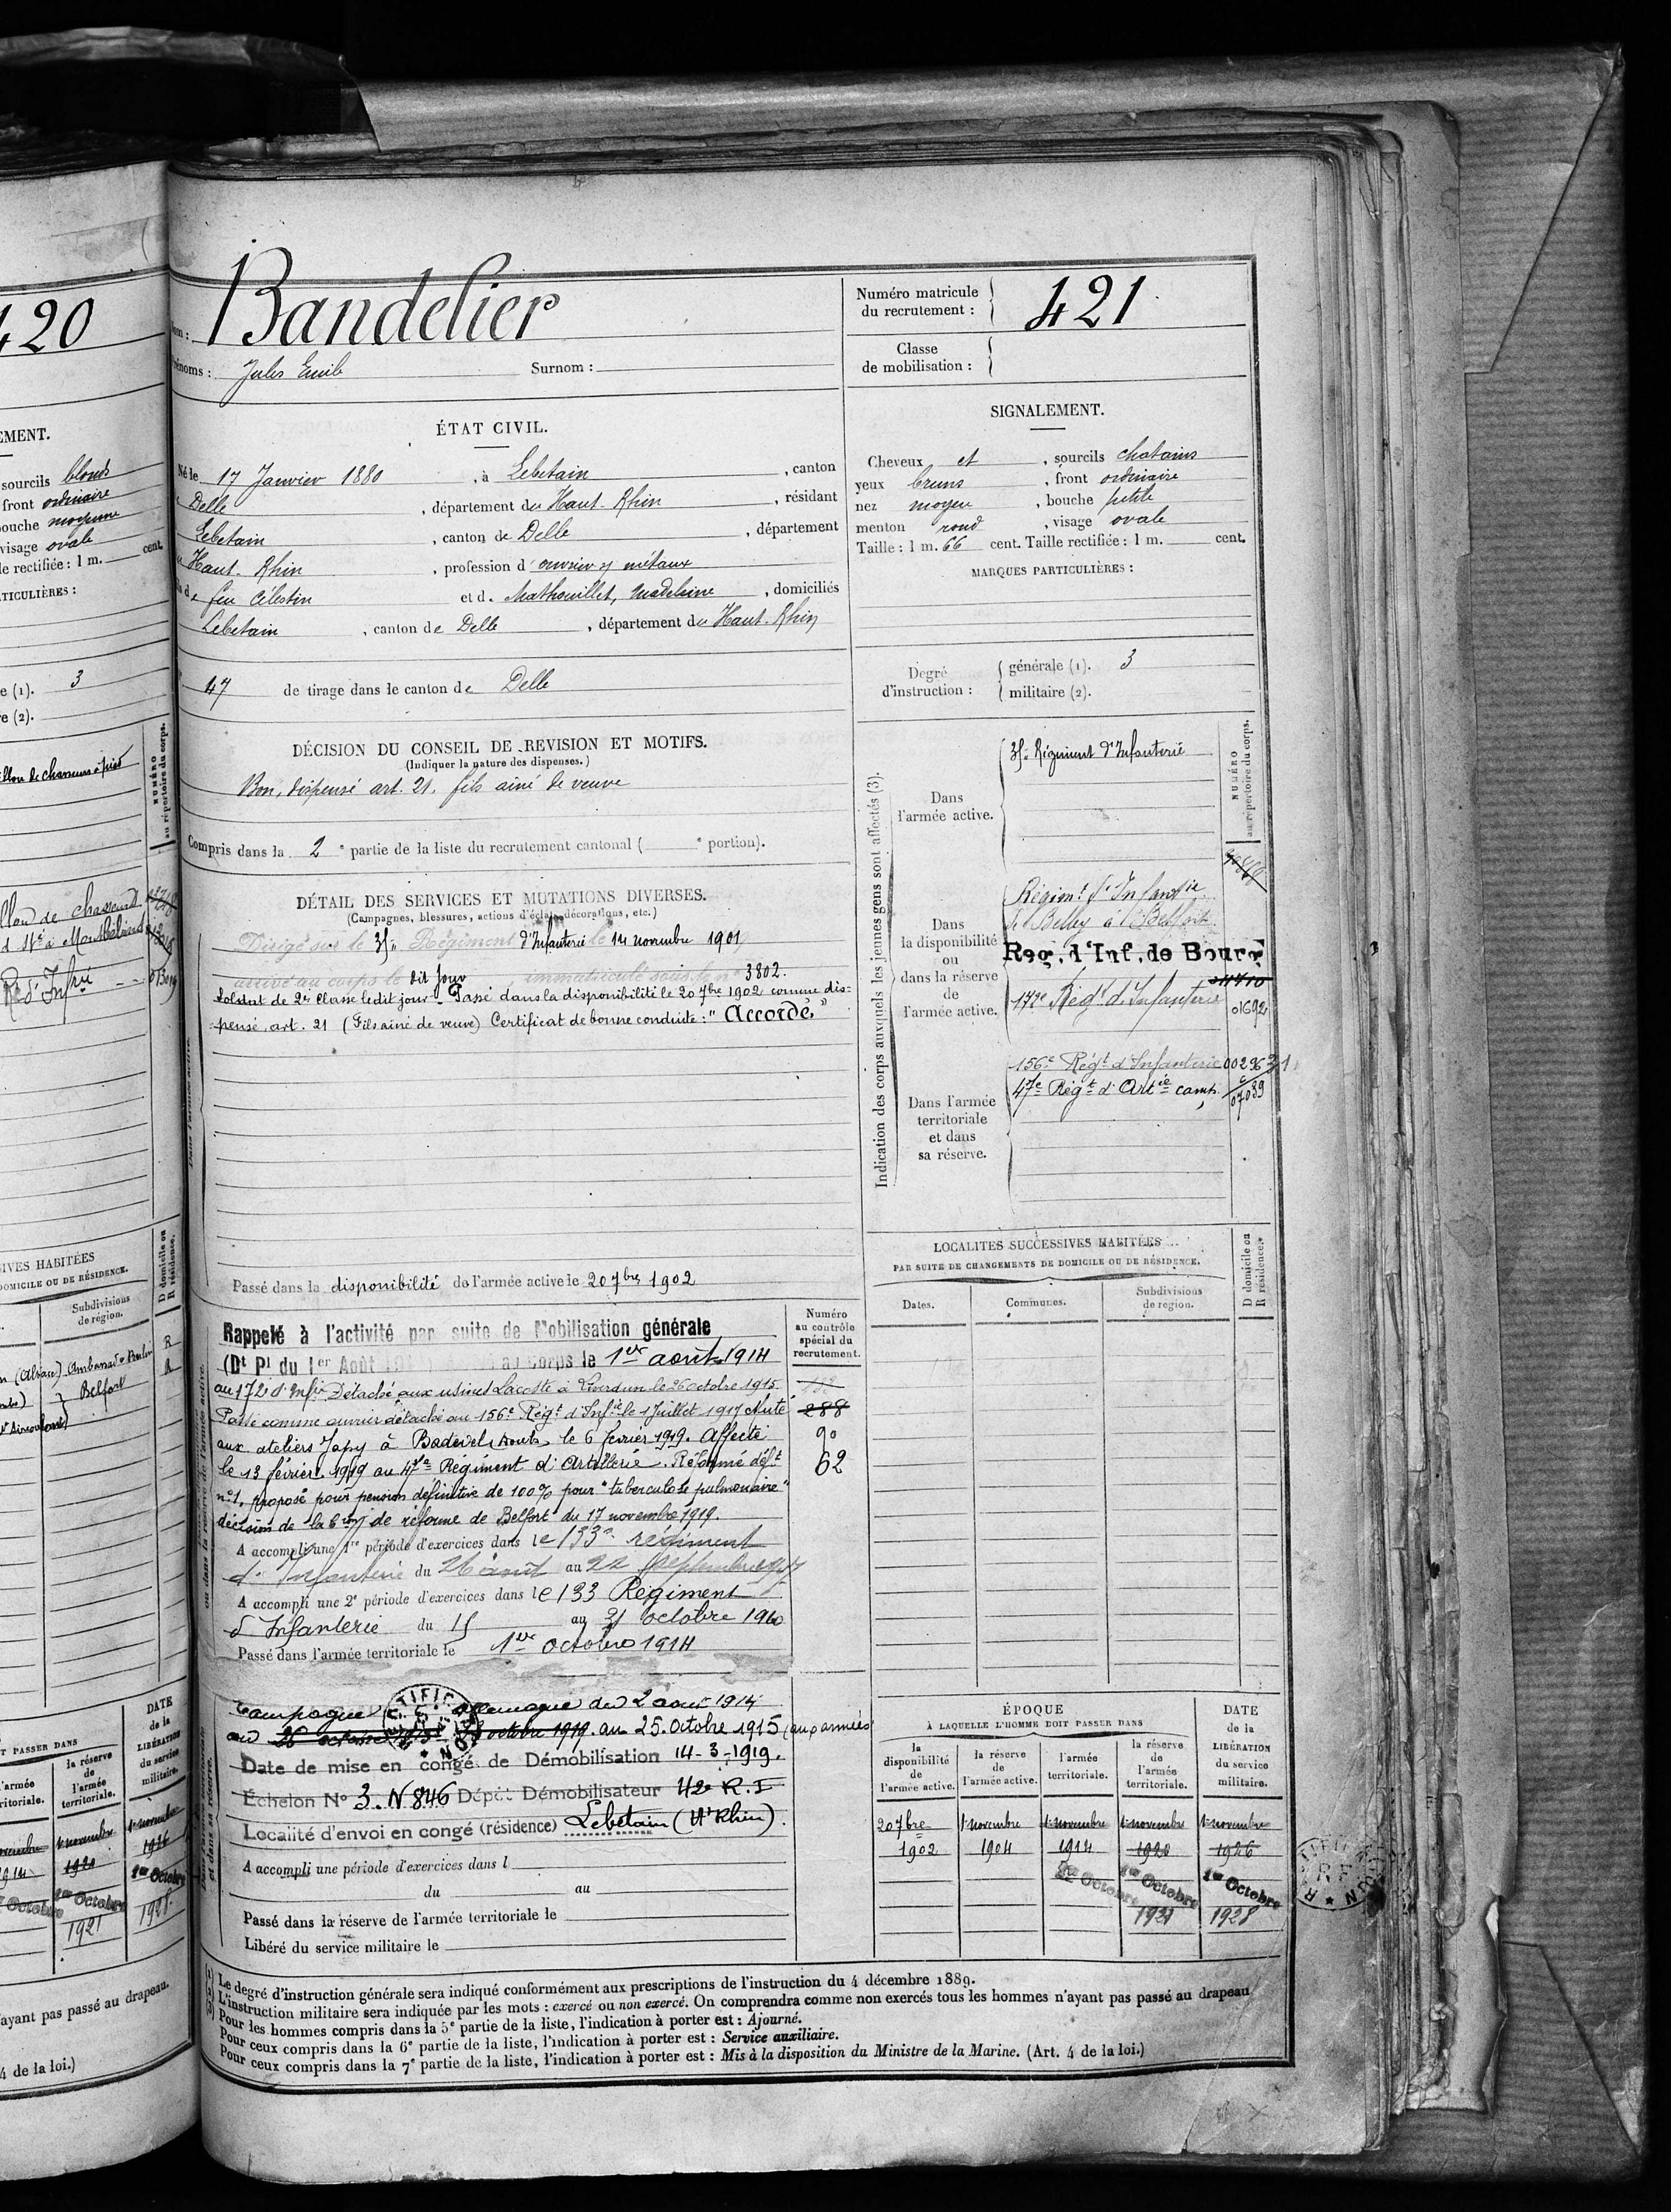 420
EMENT.
sourcils blonds
front ordinaire
bouche moyenne
visage ovale
le rectifiée : 1 m. cent.
TICULIÈRES :
e (1). 3
re (2).
llon de chasseurs à pied
NUMÉRO
au répertoire du corps.
IVES HABITÉES
DOMICILE OU DE RÉSIDENCE.
Subdivisions
de région.
D domicile ou
R résidence.
Belfort
R
R
T PASSER DANS
DATE
de la
LIBÉRATION
du service
militaire.
l'armée
territoriale.
la réserve
de
l'armée
territoriale.
1er novembre
1914
1920
1926
1er Octobre
1921
1928
ayant pas passé au drapeau.
4 de la loi.)
Nom : Bandelier
Prénoms : Jules Emile Surnom :
Numéro matricule
du recrutement : 421
Classe
de mobilisation :
ÉTAT CIVIL.
Né le 17 Janvier 1880, à Lebetain, canton
Delle, département du Haut-Rhin, résidant
Lebetain, canton de Delle, département
Haut-Rhin, profession d'ouvrier s/ métaux
feu Célestin et d. Mathouillet, Madeleine, domiciliés
Lebetain, canton de Delle, département du Haut-Rhin
47 de tirage dans le canton de Delle
SIGNALEMENT.
Cheveux et, sourcils chatains
yeux bruns, front ordinaire
nez moyen, bouche petite
menton rond, visage ovale
Taille : 1 m. 66 cent. Taille rectifiée : 1 m. cent.
MARQUES PARTICULIÈRES :
Degré
d'instruction :
générale (1). 3
militaire (2).
DÉCISION DU CONSEIL DE REVISION ET MOTIFS.
(Indiquer la nature des dispenses.)
Bon, dispensé art. 21. fils ainé de veuve
Compris dans la 2e partie de la liste du recrutement cantonal ( e portion).
DÉTAIL DES SERVICES ET MUTATIONS DIVERSES.
(Campagnes, blessures, actions d'éclat, décorations, etc.)
Dirigé sur le 35e Régiment d'Infanterie le 14 novembre 1901
arrivé au corps le dit jour immatriculé sous le no 3802.
Soldat de 2e Classe ledit jour. Passé dans la disponibilité le 20 7bre 1902 comme dis-
pensé, art. 21 (Fils ainé de veuve) Certificat de bonne conduite : "Accordé"
Passé dans la disponibilité de l'armée active le 20 7bre 1902
Indication des corps auxquels les jeunes gens sont affectés (3).
NUMÉRO
au répertoire du corps.
Dans
l'armée active.
35e Régiment d'Infanterie
Dans
la disponibilité
ou
dans la réserve
de
l'armée active.
Régimt d'Infanterie
de Belley à Belfort
Reg. d'Inf. de Bourg
172e Régt d'Infanterie 01692
Dans l'armée
territoriale
et dans
sa réserve.
156e Régt d'Infanterie 002963
47e Régt d'Artie camp. 07039
Rappelé à l'activité par suite de Mobilisation générale
(Dt Pl du 1er Août au Corps le 1er août 1914
au 172 d'Infie Détaché aux usines Lacoste à Liverdun le 26 octobre 1915.
Passé comme ouvrier détaché au 156e Régt d'Infie le 1 Juillet 1917 Muté
aux ateliers Japy à Badevel, Doubs, le 6 février 1919. Affecté
le 13 février 1919 au 47e Régiment d'Artillerie. Réformé déft
no 1, proposé pour pension définitive de 100% pour "tuberculose pulmonaire"
décision de la Con de réforme de Belfort du 17 novembre 1919.
A accompli une 1re période d'exercices dans le 133e régiment
d'Infanterie du 26 août au 22 septembre
A accompli une 2e période d'exercices dans le 133 Régiment
d'Infanterie du 15 au 31 octobre 1910
Passé dans l'armée territoriale le 1er octobre 1914
Numéro
au contrôle
spécial du
recrutement.
288
90
62
Campagne Allemagne du 2 août 1914
au 25 octobre 1915 (aux armées)
Date de mise en congé de Démobilisation 14-3-1919.
Échelon No 3. N 846 Dépôt Démobilisateur 42e R.I
Localité d'envoi en congé (résidence) Lebetain (Ht Rhin).
A accompli une période d'exercices dans l
du au
Passé dans la réserve de l'armée territoriale le
Libéré du service militaire le
LOCALITÉS SUCCESSIVES HABITÉES
PAR SUITE DE CHANGEMENTS DE DOMICILE OU DE RÉSIDENCE.
Dates.
Communes.
Subdivisions
de région.
D domicile ou
R résidence.
ÉPOQUE
À LAQUELLE L'HOMME DOIT PASSER DANS
DATE
de la
LIBÉRATION
du service
militaire.
la
disponibilité
de
l'armée active.
la réserve
de
l'armée active.
l'armée
territoriale.
la réserve
de
l'armée
territoriale.
20 7bre 1er novembre 1er novembre 1er novembre 1er novembre
1902 1904 1914 1920 1926
1er Octobre 1er Octobre 1er Octobre
1921 1928
(1) Le degré d'instruction générale sera indiqué conformément aux prescriptions de l'instruction du 4 décembre 1889.
(2) L'instruction militaire sera indiquée par les mots : exercé ou non exercé. On comprendra comme non exercés tous les hommes n'ayant pas passé au drapeau
(3) Pour les hommes compris dans la 5e partie de la liste, l'indication à porter est : Ajourné.
Pour ceux compris dans la 6e partie de la liste, l'indication à porter est : Service auxiliaire.
Pour ceux compris dans la 7e partie de la liste, l'indication à porter est : Mis à la disposition du Ministre de la Marine. (Art. 4 de la loi.)